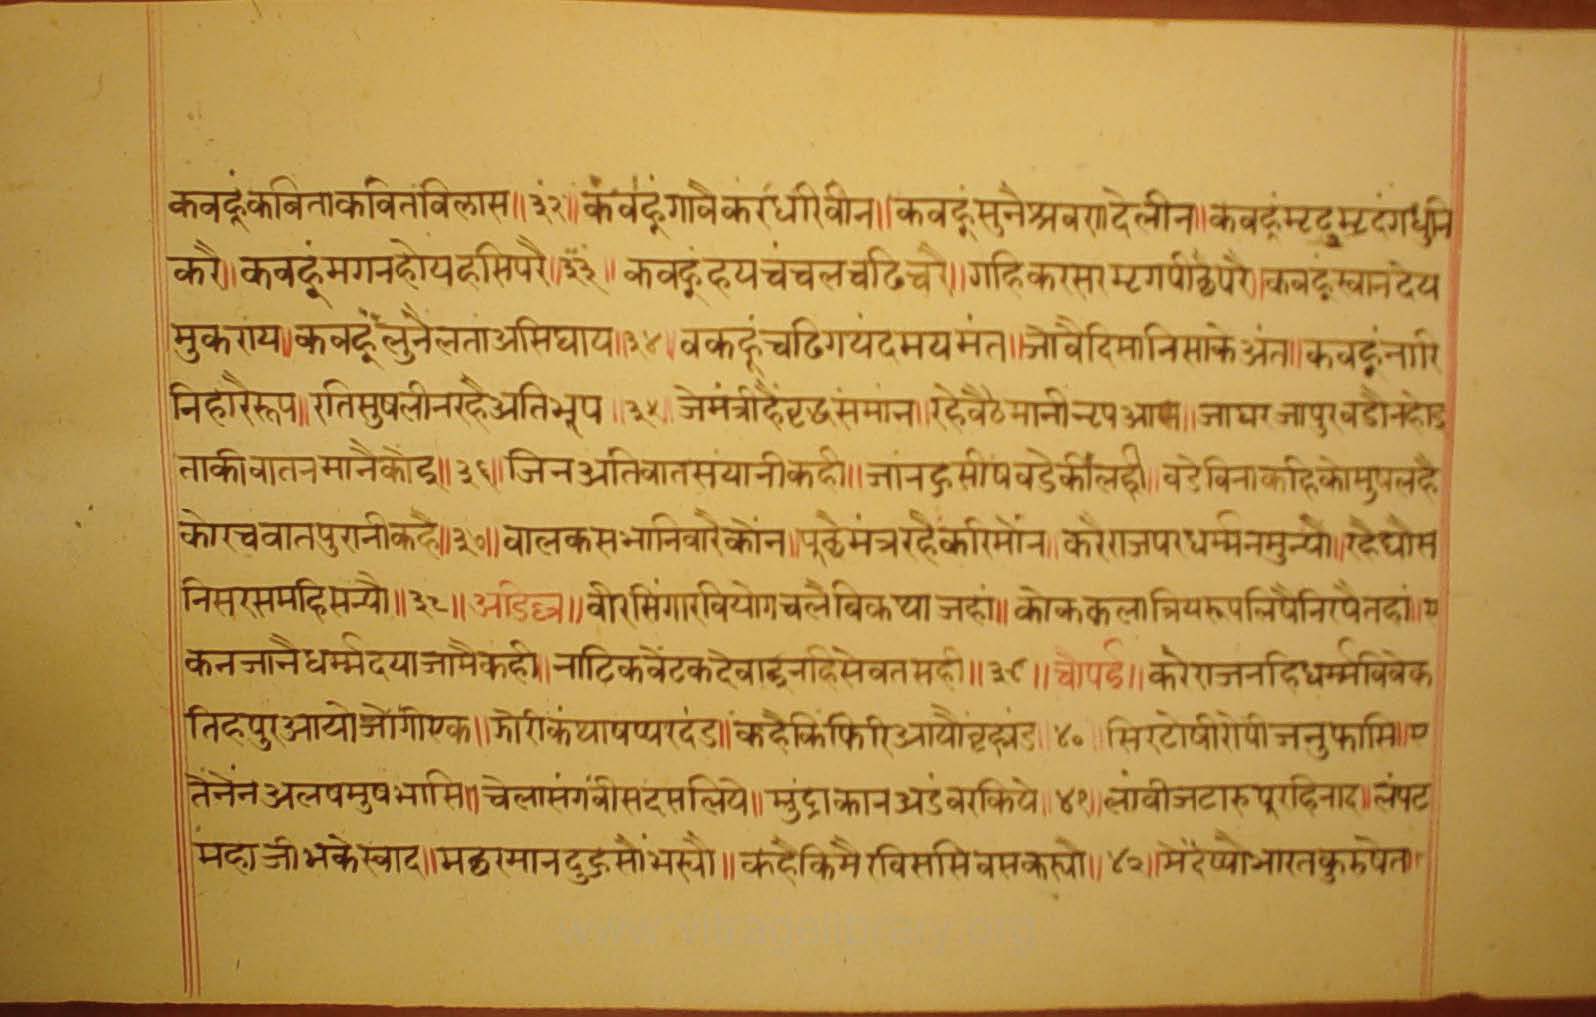 कवहूंकविताकवितविलास॥३२॥कवहूंगावैकरधरिवीन॥कवहूंसुनैश्रवणदेलीन॥कवहूंमृदुमृदंगधुनि
करै॥कवहूंमगनहोयहसिपरै॥३३॥कवहूंहयचंचलचढिचरै॥गहिकरसरमृगपीछैपरै॥कवहूंस्वानदेय
मुकराय॥कवहूंलुनैलताअसिघाय॥३४॥वकहूंचढिगयंदमयमंत॥जोवैदिसानिसाकेअंत॥कवहूंनारि
निहारैरूप॥रतिसुषलीनरहैअतिभूप॥३५॥जेमंत्रीहैंवृद्धसमांन॥रहेवैठमानीनृपआन॥जाघरजापुरवडौनहोइ
ताकीवातनमानैकोइ॥३६॥जिनअतिवातसयानीकही॥जांनहुसीषवडेकीलही॥वडेविनाकहिकोमुषलहै
कोरचवातपुरानीकहै॥३७॥वालकसभानिवारैकोंन॥पुछेमंत्ररहैंकरिमोंन॥करैराजपरधर्म्मनमुन्यौ॥रहैद्यौस
निसरसमहिसन्यौ॥३८॥अडिल्ल॥वीरसिंगारवियोगचलैविकथाजहां॥कोककलात्रियरूपलिषैनिरषैतहां॥ए
कनजानैधर्म्मदयाजामैकही॥नाटिकचेंटकदेवाइनहिसेवतसही॥३९॥चौपई॥करैराजनहिधर्म्मविवेक
तिहपुरआयोजोगीएक॥झोरीकंथाषप्परदंड॥कहैकिंफिरिआयौंवृह्मंड॥४०॥सिरटोपीरोपीजनुफासि॥रा
तेनैंनअलषमुषभासि॥चेलासंगवीसदसलिये॥मुंद्राकानअडंवरकिये॥४१॥लांवीजटारुपूरहिनाद॥लंपट
महाजीभकेस्वाद॥मछरमानदुहुसोंभस्यौ॥कहैकिमैरविससिवसकस्यौ॥४२॥मेंदेष्यौभारतकुरुषेत॥